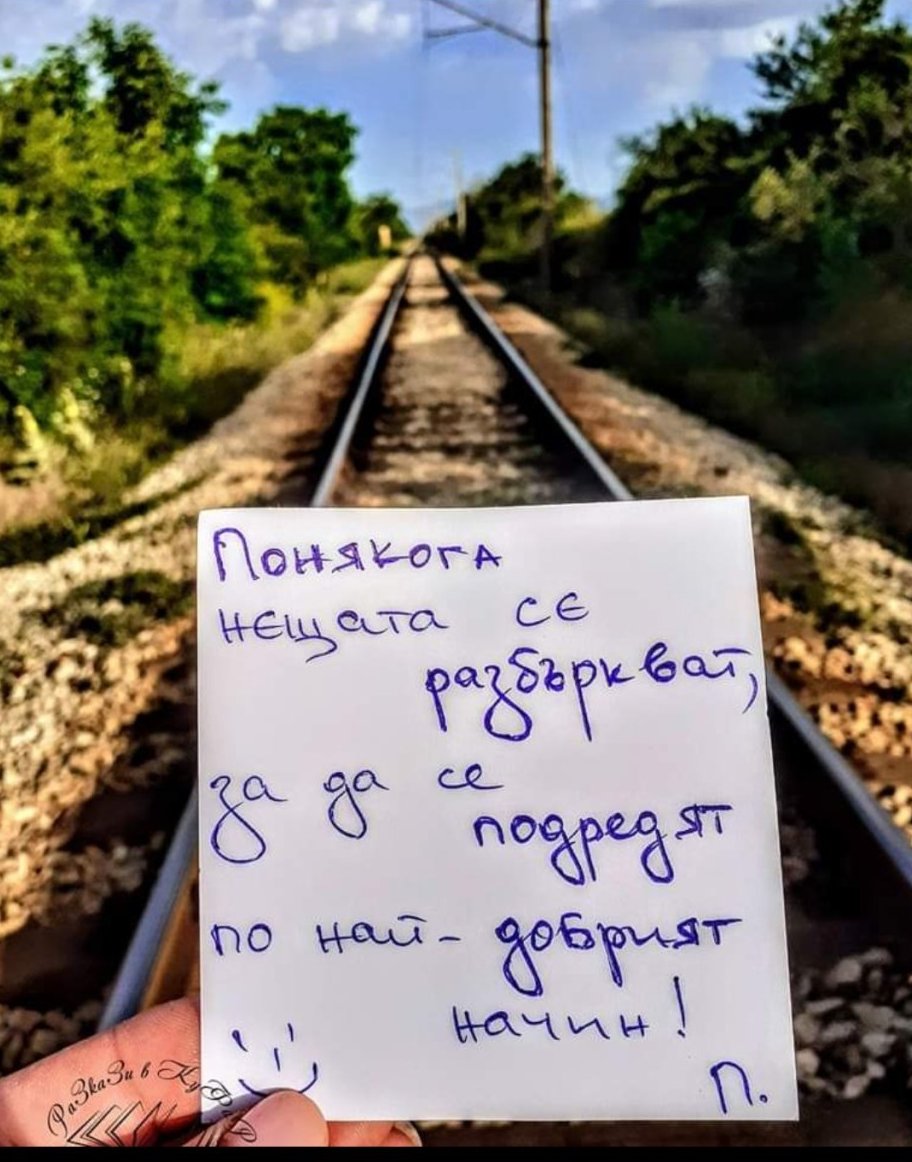 Понякога
нещата се
разбъркват,
за да се
подредят
по най-добрият
начин!
П.
РаЗкаЗи в